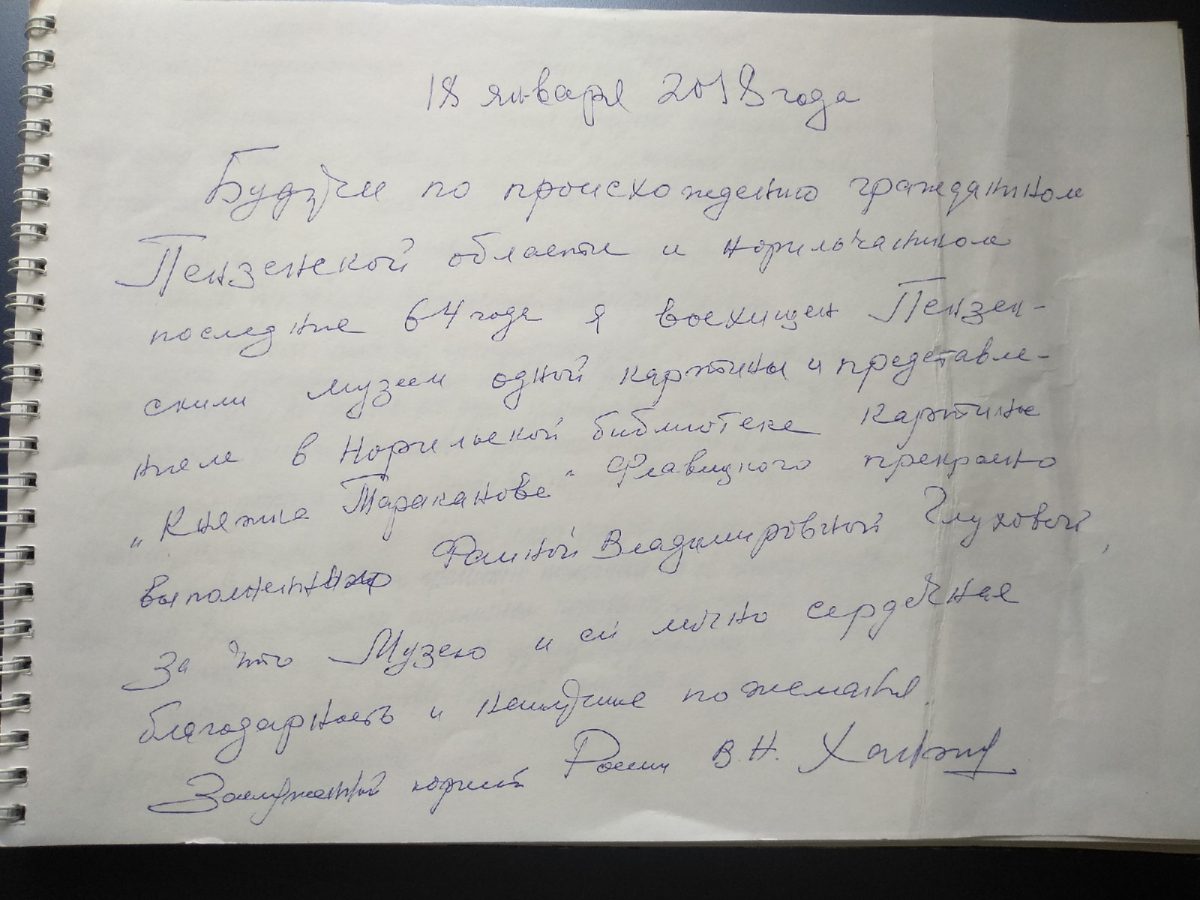 18 января 2018 года
Будучи по происхождению гражданином
Пензенской области и норильчанином
последние 64 года я восхищен Пензен-
ским музеем одной картины и представле-
нием в Норильской библиотеке картины
„Княжна Тараканова" Флавицкого прекрасно
выполненную Владимировной Глуховой,
за что Музею и ей лично сердечная
благодарность и наилучшие пожелания
Заслуженный юрист России В.Н.